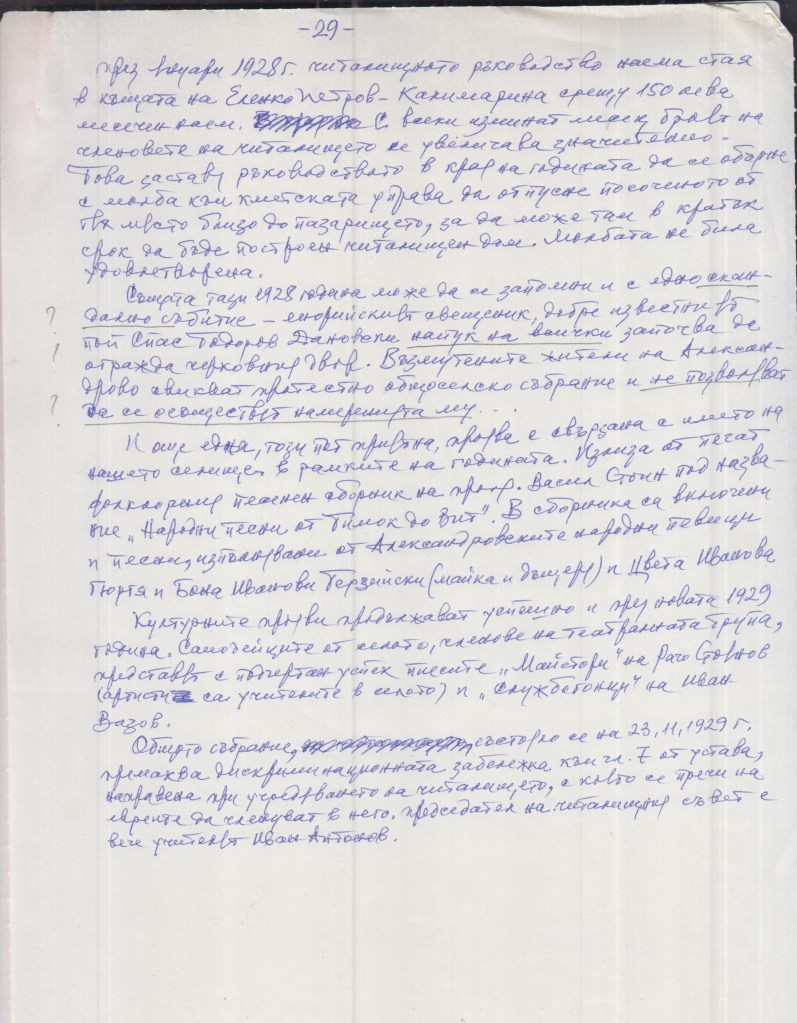 -29-
през януари 1928 г. читалищното ръководство наема стая
в къщата на Еленко Петров - Калимарина срещу 150 лева
месечен наем. С всеки изминат месец броят на
членовете на читалището се увеличава значително.
Това заставя ръководството в края на годината да се обърне
с молба към кметската управа да отпусне посоченото от
тях място близо до пазарището, за да може там в кратък
срок да бъде построен читалищен дом. Молбата не била
удовлетворена.
Същата тази 1928 година може да се запомни и с едно скан-
дално събитие - енорийският свещеник, добре известният
поп Спас Тодоров Дановски напук на всички започва да
? огражда черковния двор. Възмутените жители на Алексан-
! дрово свикват протестно общоселско събрание и не позволяват
? да се осъществят намеренията му...
И още една, този път приятна, проява е свързана с името на
нашето селище в рамките на годината. Излиза от печат
фолклорния песенен сборник на проф. Васил Стоин под назва-
ние "Народни песни от Тимок до Вит". В сборника са включени
и песни, изпълнявани от Александровските народни певици
Гюргя и Бона Иванови Терзийски (майка и дъщеря) и Цвета Иванова
Културните прояви продължават успешно и през новата 1929
година. Самодейците от селото, членове на театралната група,
представят с подчертан успех пиесите "Майстори" на Рачо Стоянов
(артисти са учителите в селото) и "Службогонци" на Иван
Вазов.
Общото събрание, състояло се на 23.11.1929 г.
премахва дискриминационната забележка към чл. 7 от устава,
направена при учредяването на читалището, с която се пречи на
евреите да членуват в него. Председател на читалищния съвет е
вече учителят Иван Антонов.